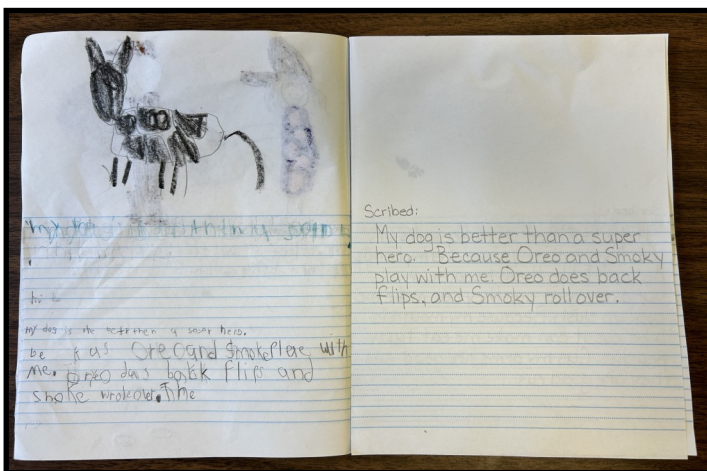 my
hi
my dog is the than a hero.
be kas Oreo and Smoke Plere with
me. Oreo das back flips and
smoke wroleover. The
Scribed:
My dog is better than a super
hero. Because Oreo and Smoky
play with me. Oreo does back
flips, and Smoky roll over.